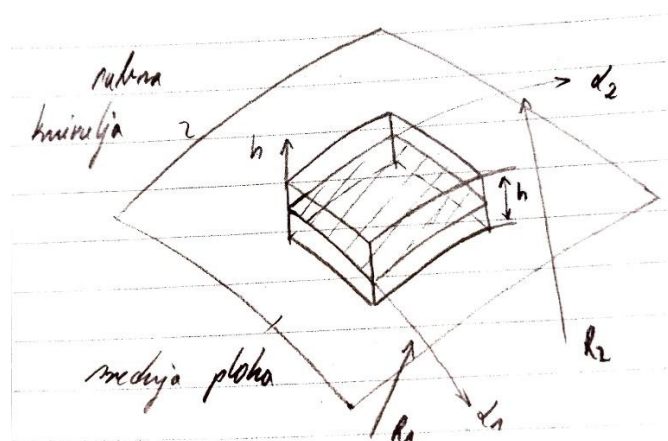 rubna
krivulja
α₂
n
h
R₂
srednja ploha
R₁
α₁